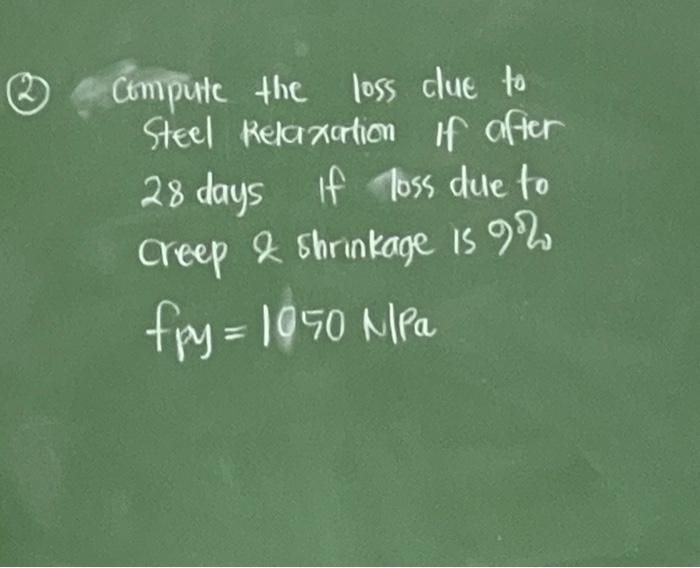 ② Compute the loss due to
Steel Relaxation If after
28 days If loss due to
creep & shrinkage is 9%
fpy = 1050 MPa